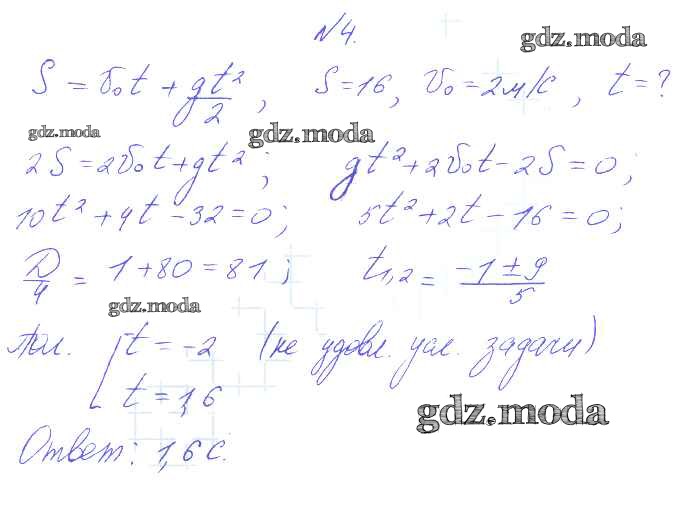 №4.
gdz.moda
S = v₀t + gt²/2, S=16, v₀=2м/с, t=?
gdz.moda gdz.moda
2S=2v₀t+gt²; gt²+2v₀t-2S=0;
10t²+4t-32=0; 5t²+2t-16=0;
D/4 = 1+80=81; t₁,₂ = (-1±9)/5
gdz.moda
Пол. [ t=-2 (не удовл. усл. задачи)
t=1,6
gdz.moda
Ответ: 1,6 с.